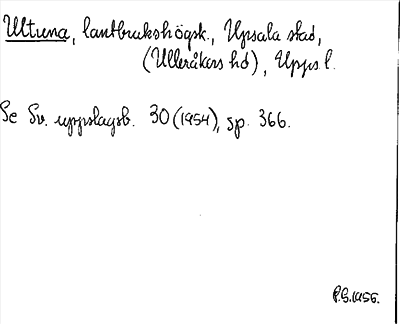 Ultuna, lantbrukshögsk., Upsala stad,
(Ulleråkers hd), Upps l.
Se Sv. uppslagsb. 30 (1954), sp. 366.
P.G. 1956.